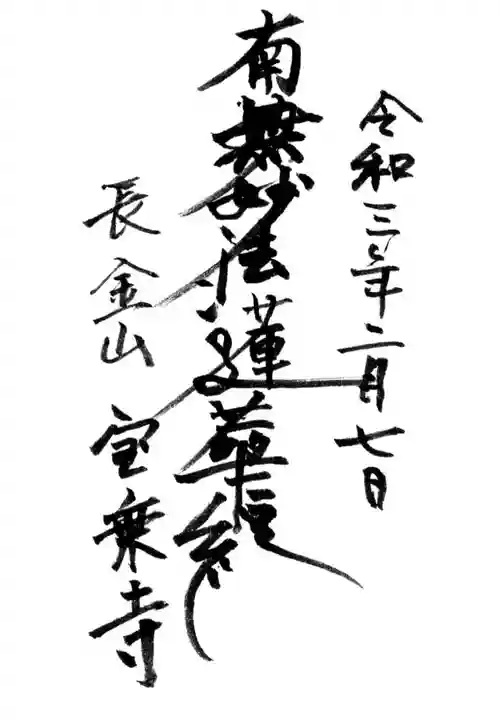 令和三年二月七日
南無妙法蓮華経
長金山 宝乗寺